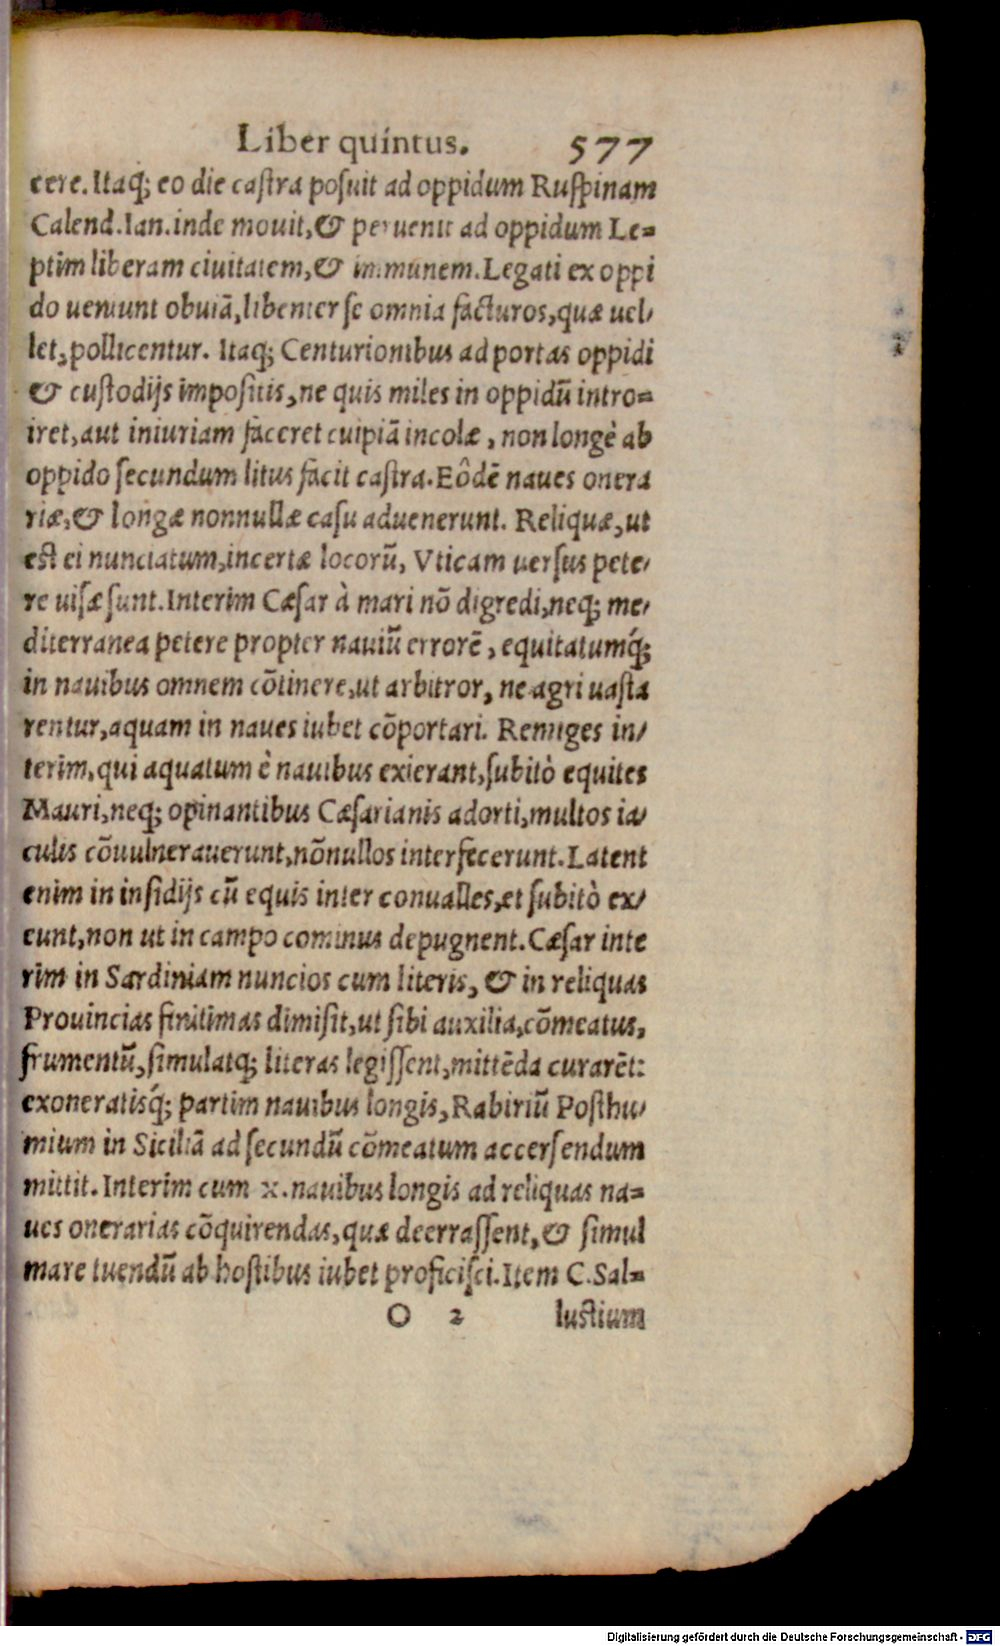 Liber quintus. 577
cere. Itaq; eo die castra posuit ad oppidum Ruspinam
Calend. Ian. inde mouit, & peruenit ad oppidum Le=
ptim liberam ciuitatem, & immunem. Legati ex oppi
do ueniunt obuiā, libenter se omnia facturos, quæ uel/
let, pollicentur. Itaq; Centurionibus ad portas oppidi
& custodijs impositis, ne quis miles in oppidū intro=
iret, aut iniuriam faceret cuipiā incolæ, non longè ab
oppido secundum litus facit castra. Eôdē naues onera
riæ, & longæ nonnullæ casu aduenerunt. Reliquæ, ut
est ei nunciatum, incertæ locorū, Vticam uersus pete/
re uisæ sunt. Interim Cæsar à mari nō digredi, neq; me/
diterranea petere propter nauiū errorē, equitatumq́;
in nauibus omnem cōtinere, ut arbitror, ne agri uasta
rentur, aquam in naues iubet cōportari. Remiges in/
terim, qui aquatum è nauibus exierant, subitò equites
Mauri, neq; opinantibus Cæsarianis adorti, multos ia/
culis cōuulnerauerunt, nōnullos interfecerunt. Latent
enim in insidijs cū equis inter conualles, et subitò ex/
eunt, non ut in campo cominus depugnent. Cæsar inte
rim in Sardiniam nuncios cum literis, & in reliquas
Prouincias finitimas dimisit, ut sibi auxilia, cōmeatus,
frumentū, simulatq; literas legissent, mittēda curarēt:
exoneratisq́; partim nauibus longis, Rabiriū Posthu/
mium in Siciliā ad secundū cōmeatum accersendum
mittit. Interim cum x. nauibus longis ad reliquas na=
ues onerarias cōquirendas, quæ deerrassent, & simul
mare tuendū ab hostibus iubet proficisci. Item C. Sal=
O 2 lustium
Digitalisierung gefördert durch die Deutsche Forschungsgemeinschaft - DFG